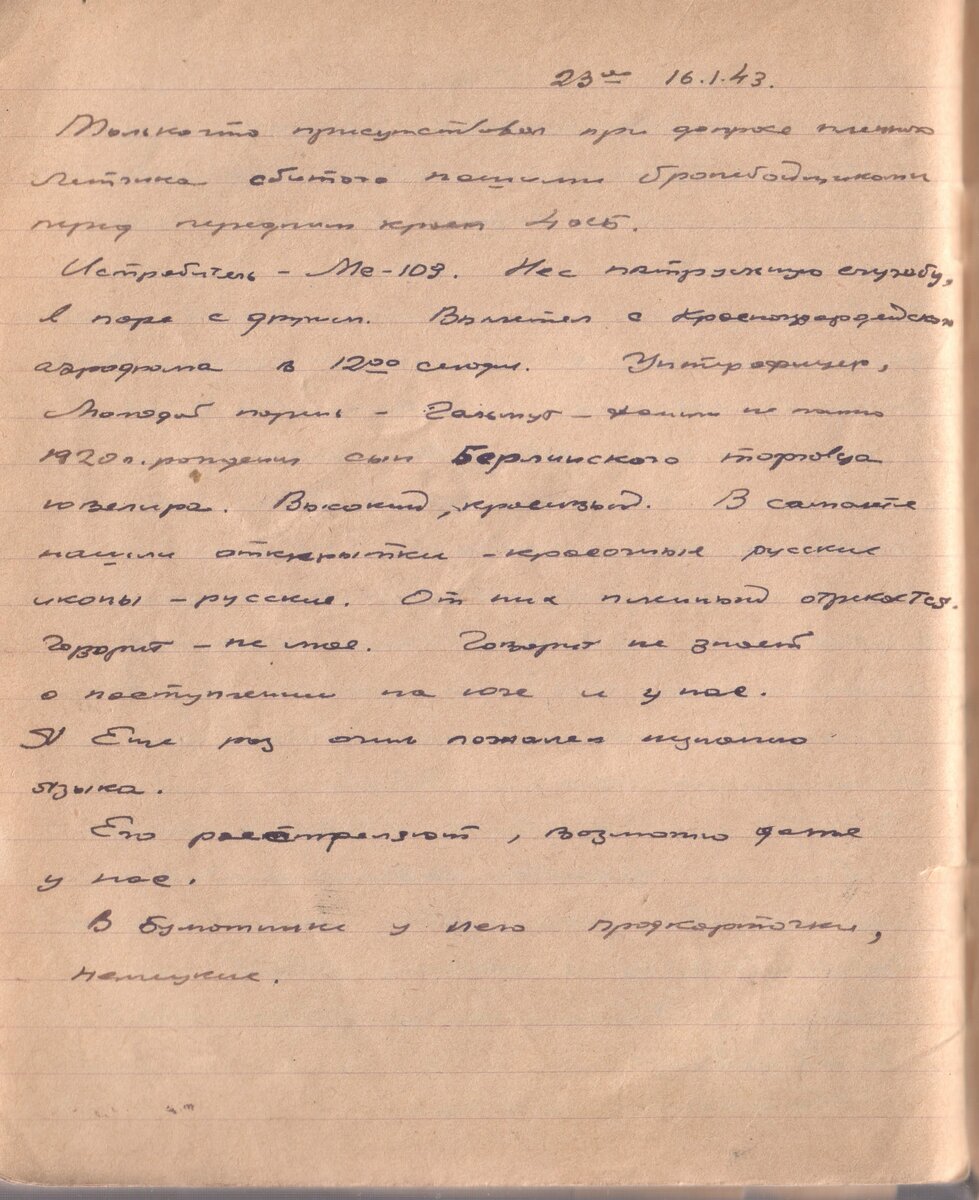 23 00 16.1.43.
Только что присутствовал при допросе пленного
летчика сбитого нашими бронебойщиками
перед передним краем 4 осб.
Истребитель – Ме-109. Нес патрульную службу,
в паре с другим. Вылетел с Красногвардейского
аэродрома в 12 00 сегодня. Унтерофицер,
Молодой парень – Гельмут – не
1920 г. рождения сын Берлинского торговца
ювелира. Высокий, красивый. В самолете
нашли открытки – красочные русские
иконы – русские. От них пленный открекается.
Говорит – не мое. Говорит не знает
о наступлении на юге и у нас.
Еще раз очень пожалел незнанию
языка.
Его расстреляют, возможно даже
у нас.
В бумажнике у него продкарточки,
немецкие.